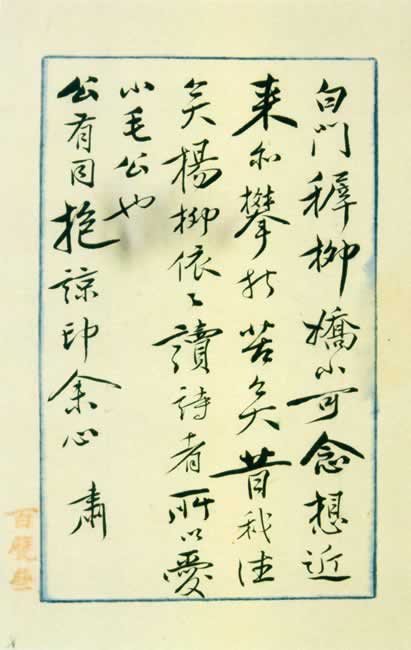 白門穉柳嬌小可念想近
來亦攀折苦矣昔我往
矣楊柳依〻讀詩者所以愛
小毛公也
公有同抱諒印余心 肅